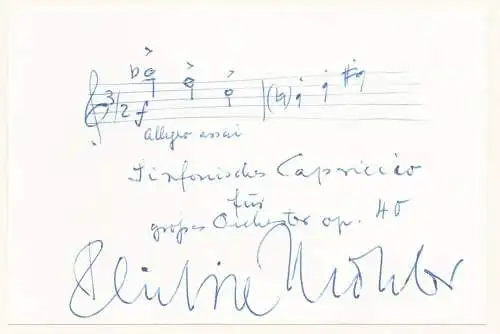 3/2 f
Allegro assai
Sinfonisches Capriccio
für
großes Orchester op. 40
Philipp Mohler